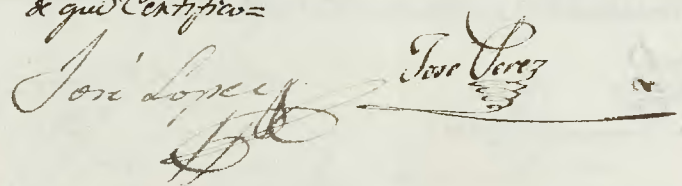 de que Certifico=
José Lopez
Jose Perez